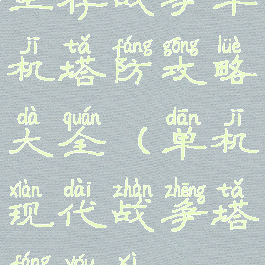 生存战争单
jī tǎ fáng gōng lüè
机塔防攻略
dà quán dān jī
大全（单机
xiàn dài zhàn zhēng tǎ
现代战争塔
fáng yóu xì